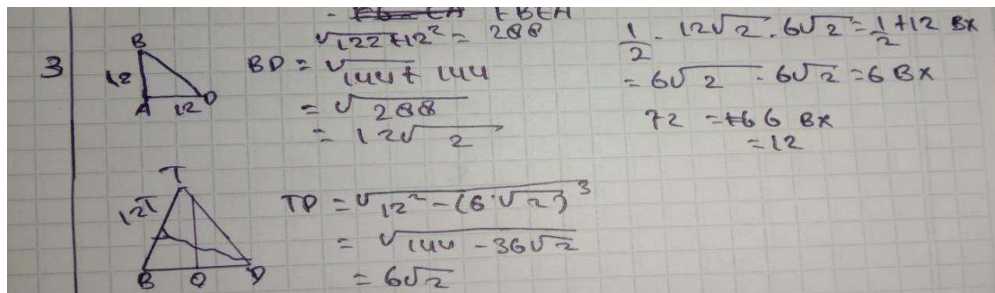 √122+12² = 288
3
B
12
A 12 D
BD = √144 + 144
= √288
= 12√2
T
12
B O D
TP = √12² - (6·√2)³
= √144 - 36√2
= 6√2
1/2 - 12√2 · 6√2 = 1/2 + 12 BX
= 6√2 · 6√2 = 6 BX
72 = 6 BX
= 12